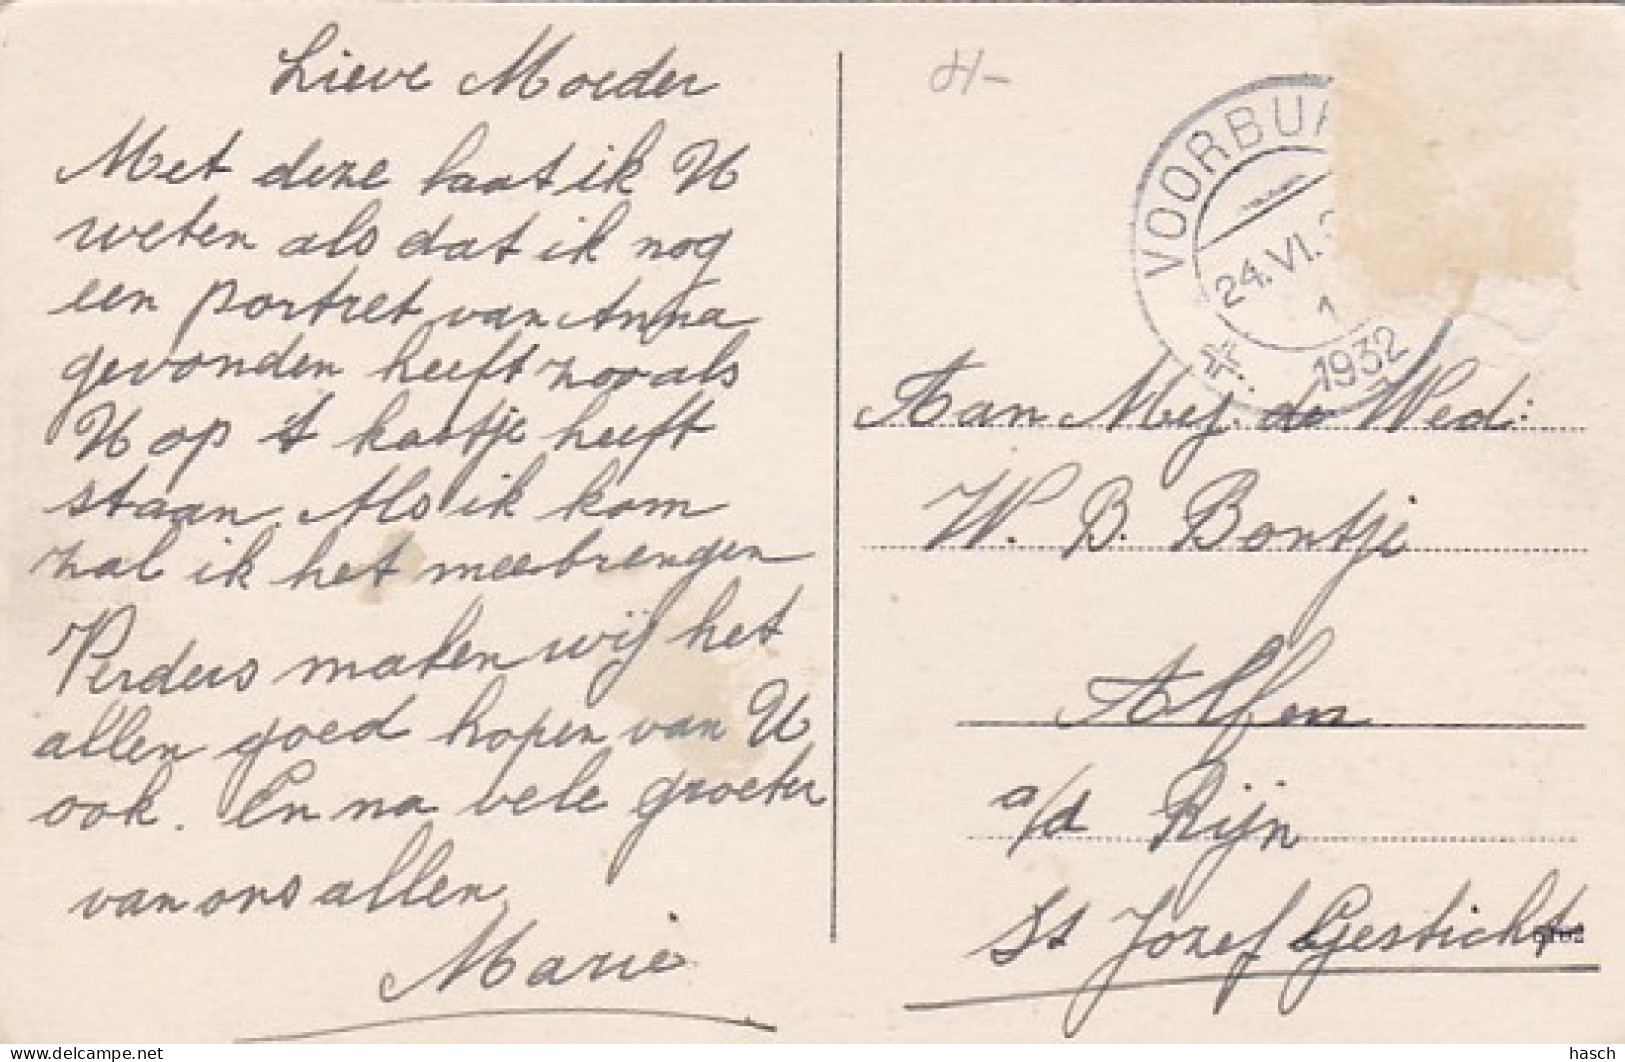 Lieve Moeder
Met deze laat ik U
weten als dat ik nog
een portret van Anna
gevonden heeft zooals
U op 't kastje heeft
staan. Als ik kom
zal ik het meebrengen
Verders maken wij het
allen goed hopen van U
ook. En na vele groeten
van ons allen
Marie
VOORBU
24.VI.3
1
1932
Aan Mej. de Wed:
W. B. Bontje
Alfen
a/d Rijn
St Jozef Gesticht
hasch
www.delcampe.net